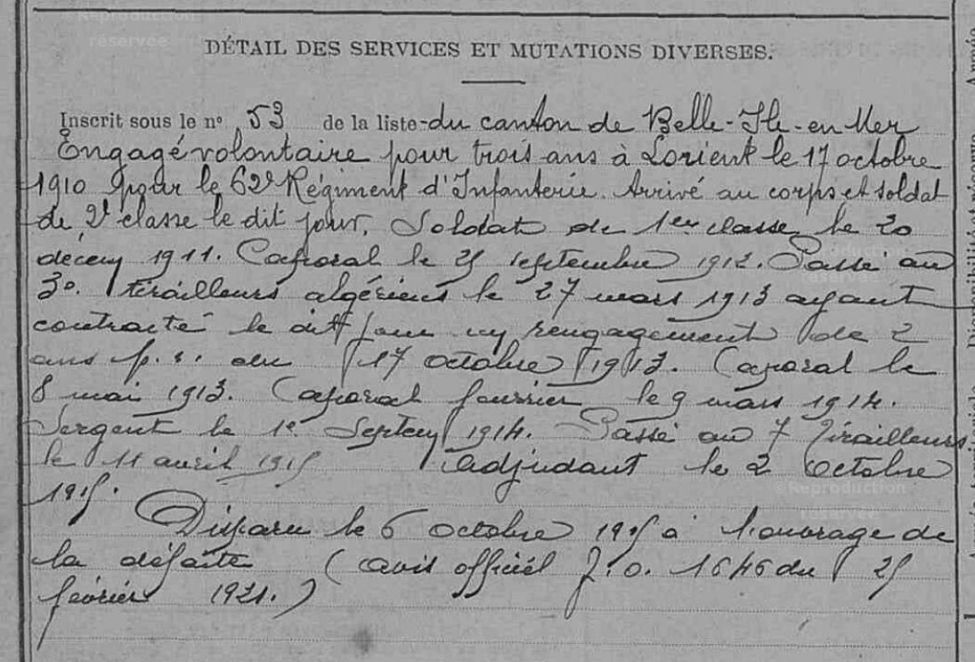 DÉTAIL DES SERVICES ET MUTATIONS DIVERSES.
Inscrit sous le n° 53 de la liste du canton de Belle-Ile-en-Mer
Engagé volontaire pour trois ans à Lorient le 17 octobre
1910 pour le 62e Régiment d'Infanterie. Arrivé au corps et soldat
de 2e classe le dit jour. Soldat de 1ere classe le 20
décem 1911. Caporal le 25 septembre 1912. Passé au
3e. tirailleurs algériens le 27 mars 1913 ayant
contracté le dit jour un rengagement de 2
ans p. r. du 17 octobre 1913. Caporal le
8 mai 1913. Caporal fourrier le 9 mars 1914.
Sergent le 1e Septem 1914. Passé au 7 Tirailleurs
le 11 avril 1915 Adjudant le 2 octobre
1915.
Disparu le 6 octobre 1915 à l'ouvrage de
la défaite (avis officiel J.O. 1646 du 25
février 1921.)
Reproduction
réservée
Reproduction